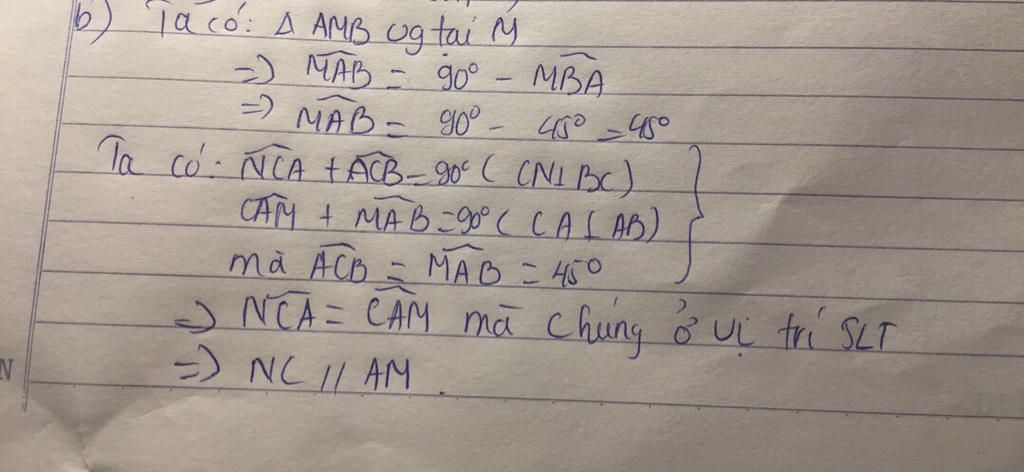 b) Ta có: Δ AMB vg tại M
=> MAB = 90° - MBA
=> MAB = 90° - 45° = 45°
Ta có: NCA + ACB = 90° ( CN ⊥ BC)
CAM + MAB = 90° ( CA ⊥ AB)
mà ACB = MAB = 45°
=> NCA = CAM mà chúng ở vị trí SLT
=> NC // AM.
N